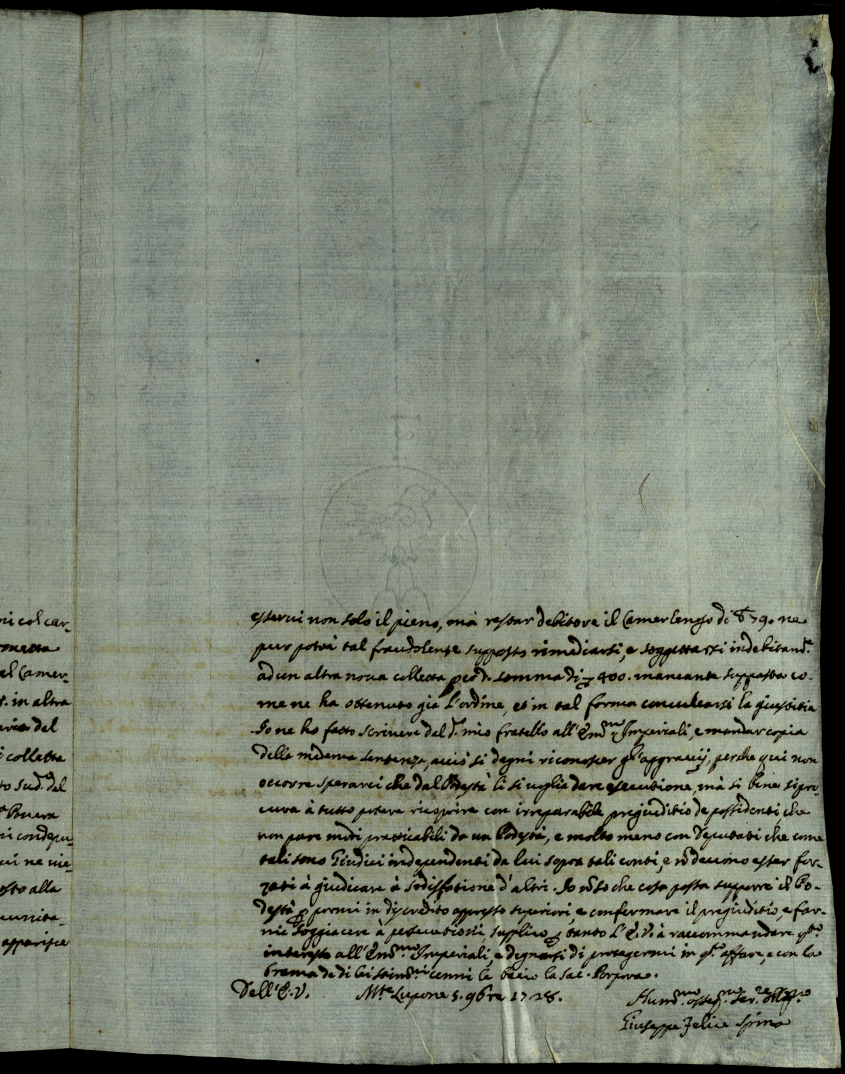 ni col car-
al Camer-
. in altra
del
colletta
to sud.o del
Buera
ri condepu-
ui ne vie-
osto alla
apparisce
esservi non solo il pieno, mà restar debitore il Camerlengo di 790 ne
pur potrà tal fraudolente supposto rimediarsi, e soggettarsi indebitam.e
ad un altra nova colletta per d.a somma di 400. mancante supposta co-
me ne ha ottenuto già l'ordine, et in tal forma conculcarsi la giustitia
Io ne ho fatto scrivere dal S.r mio fratello all'Em.mo Imperiali, e mandar copia
della medema sentenza, acciò si degni riconoscer gl'aggravij, perche qui non
occorre sperarsi che dal Podestà li si voglia dare esecutione, mà si bene si pro-
cura à tutto potere ricoprire con irreparabile pregiuditio de possidenti che
non pare modi pratticabili da un Podestà, e molto meno con Deputati che come
tali sono Giudici independenti da lui sopra tali conti, e nō devono esser for-
zati à giudicare à sodisfatione d'altri. Io nō so che cosa possa supporre il Po-
destà p. pormi in discredito appresso superiori, e confermare il pregiuditio, e far-
mi soggiacere à persecutioni supplico p. tanto l'E.V. à raccommandare q.sto
interesse all'Em.mo Imperiali, e degnarsi di protegermi in q.sto affare, e con la
brama de di lei stim.mi cenni le bacio la Sac. Porpora.
Dell'E.V. M.te Lupone 5. 9bre 1728.
Hum.mo Ser.re
Giuseppe Felice Spina